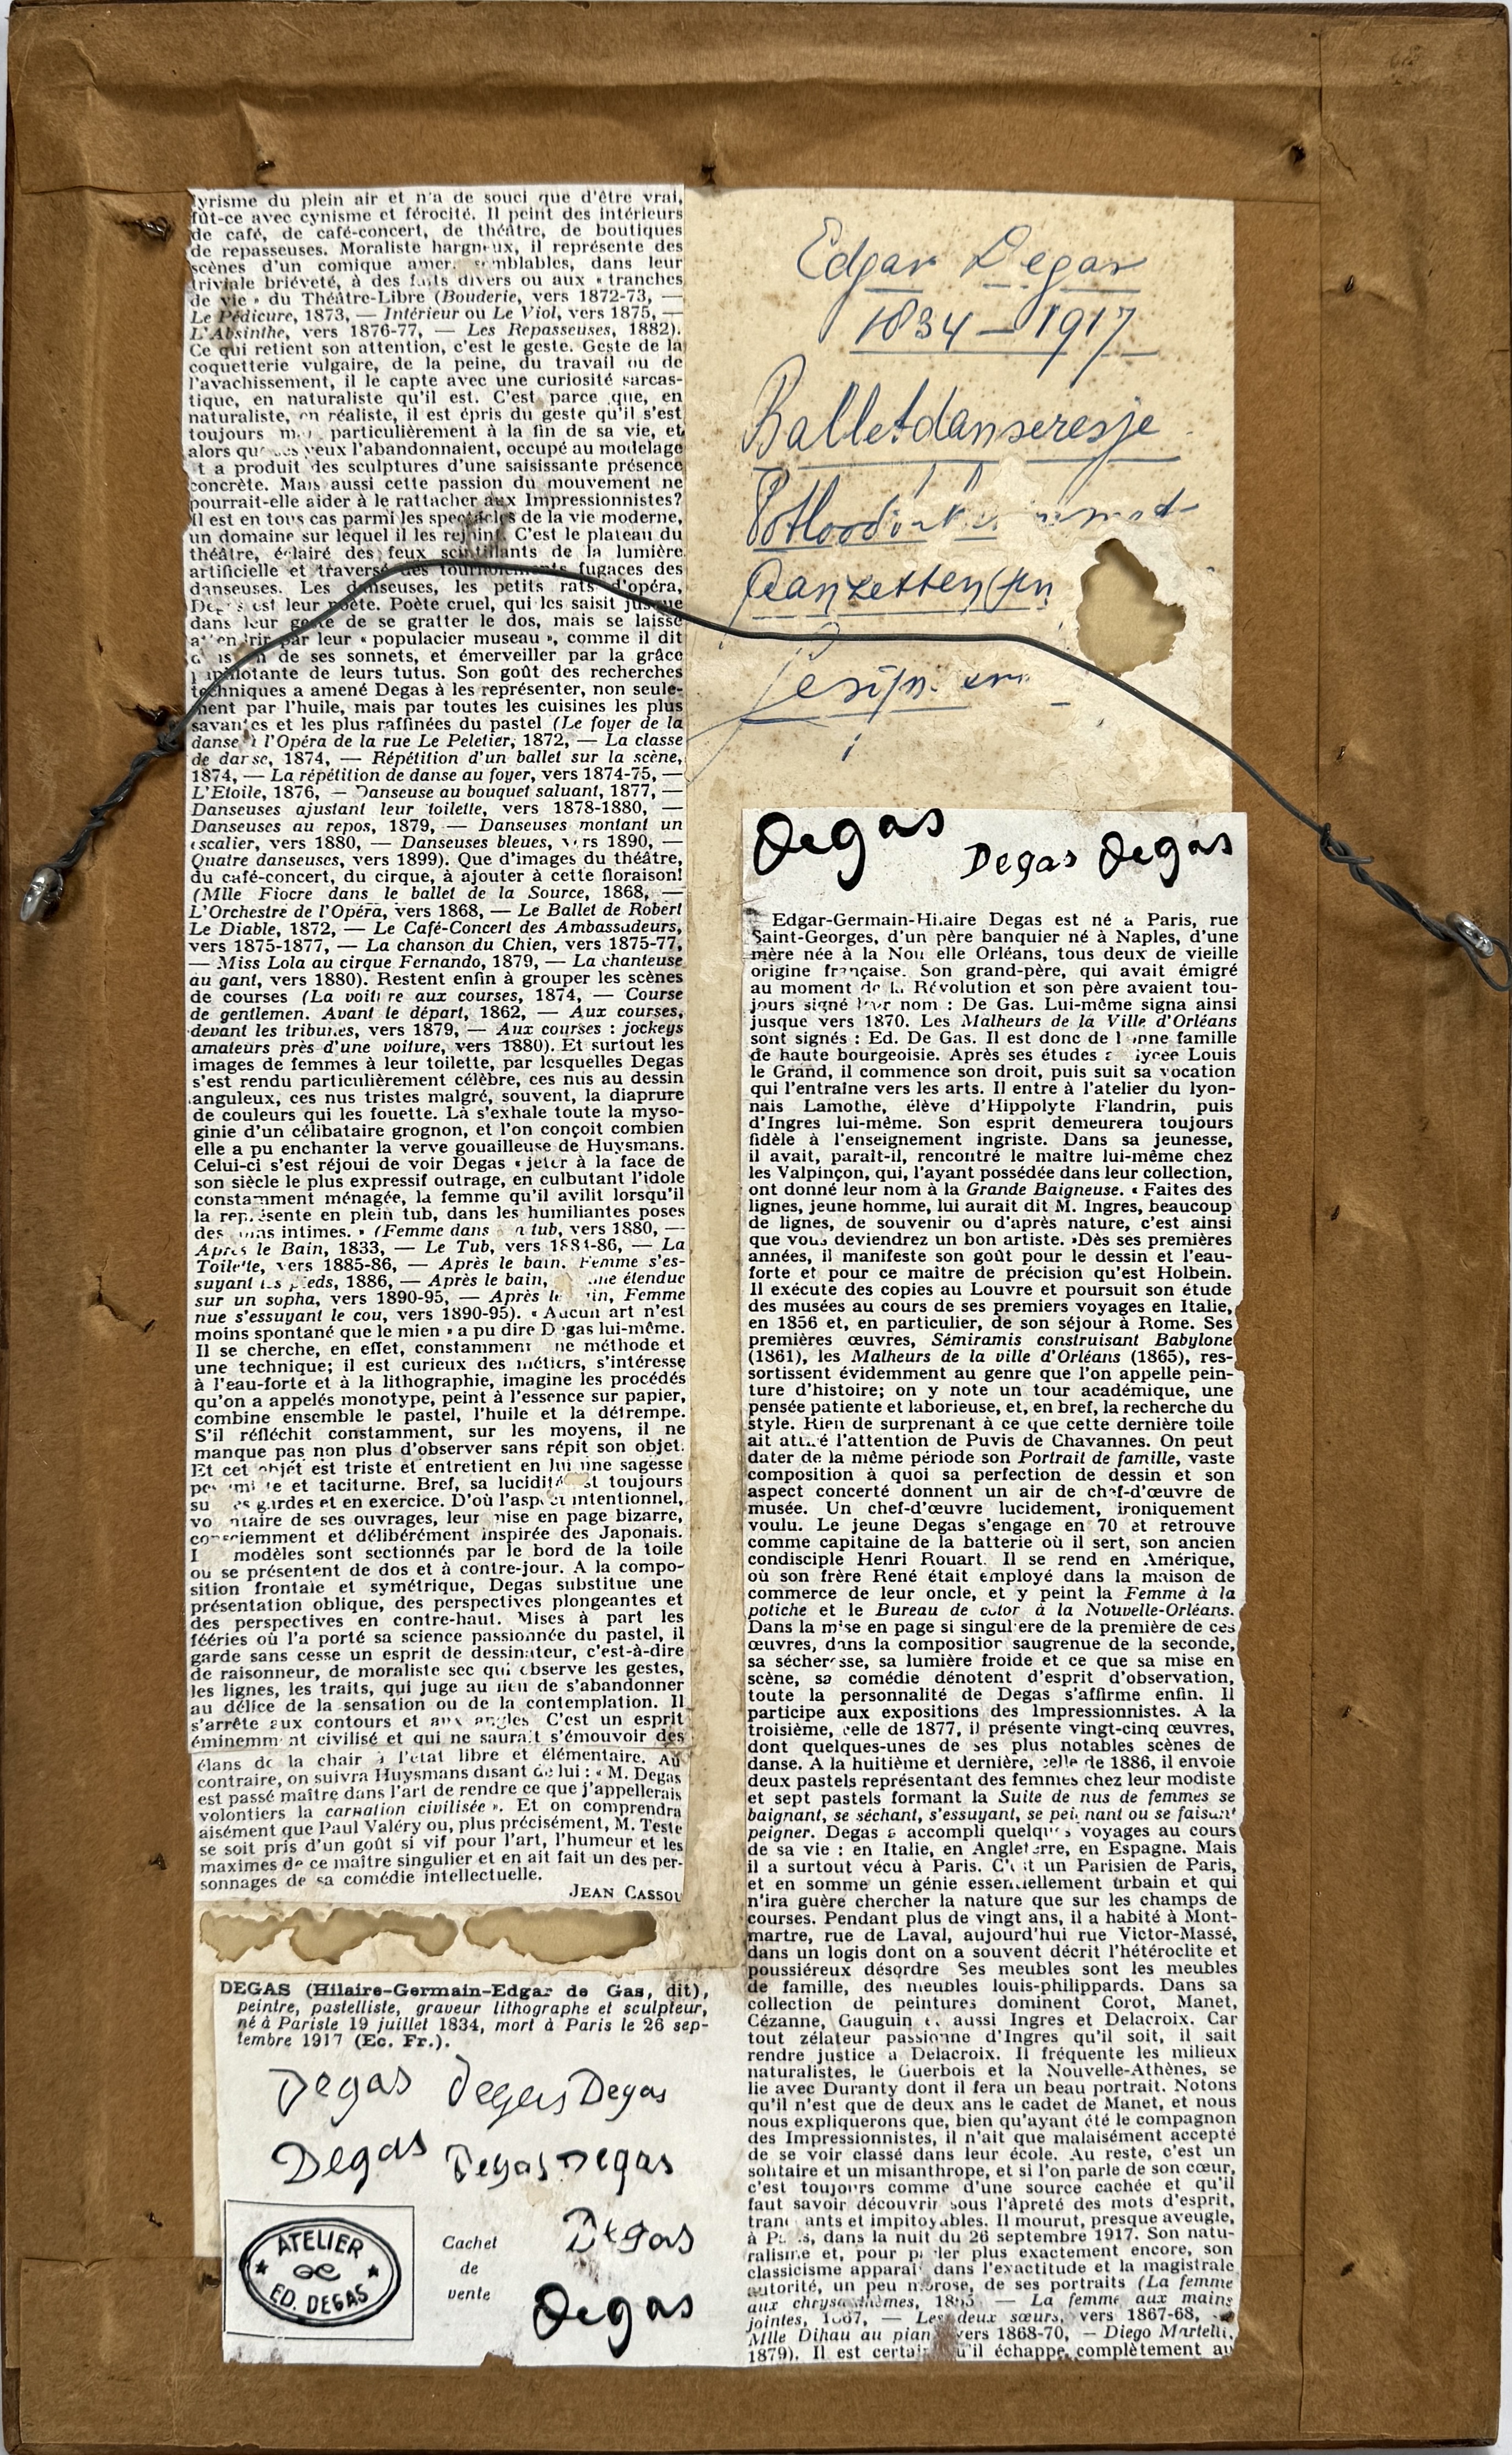 lyrisme du plein air et n'a de souci que d'être vrai,
fût-ce avec cynisme et férocité. Il peint des intérieurs
de café, de café-concert, de théâtre, de boutiques
de repasseuses. Moraliste hargneux, il représente des
scènes d'un comique amer, semblables, dans leur
triviale brièveté, à des faits divers ou aux « tranches
de vie » du Théâtre-Libre (Bouderie, vers 1872-73, —
Le Pédicure, 1873, — Intérieur ou Le Viol, vers 1875, —
L'Absinthe, vers 1876-77, — Les Repasseuses, 1882).
Ce qui retient son attention, c'est le geste. Geste de la
coquetterie vulgaire, de la peine, du travail ou de
l'avachissement, il le capte avec une curiosité sarcas-
tique, en naturaliste qu'il est. C'est parce que, en
naturaliste, en réaliste, il est épris du geste qu'il s'est
toujours particulièrement à la fin de sa vie, et
alors que ses yeux l'abandonnaient, occupé au modelage
et a produit des sculptures d'une saisissante présence
concrète. Mais aussi cette passion du mouvement ne
pourrait-elle aider à le rattacher aux Impressionnistes?
Il est en tous cas parmi les spectacles de la vie moderne,
un domaine sur lequel il les rejoint. C'est le plateau du
théâtre, éclairé des feux scintillants de la lumière
artificielle et traversé des tournoiements fugaces des
danseuses. Les danseuses, les petits rats d'opéra,
Degas est leur poète. Poète cruel, qui les saisit jusque
dans leur geste de se gratter le dos, mais se laisse
attendrir par leur « populacier museau », comme il dit
dans un de ses sonnets, et émerveiller par la grâce
papillotante de leurs tutus. Son goût des recherches
techniques a amené Degas à les représenter, non seule-
ment par l'huile, mais par toutes les cuisines les plus
savantes et les plus raffinées du pastel (Le foyer de la
danse à l'Opéra de la rue Le Peletier, 1872, — La classe
de danse, 1874, — Répétition d'un ballet sur la scène,
1874, — La répétition de danse au foyer, vers 1874-75, —
L'Etoile, 1876, — Danseuse au bouquet saluant, 1877, —
Danseuses ajustant leur toilette, vers 1878-1880, —
Danseuses au repos, 1879, — Danseuses montant un
escalier, vers 1880, — Danseuses bleues, vers 1890, —
Quatre danseuses, vers 1899). Que d'images du théâtre,
du café-concert, du cirque, à ajouter à cette floraison!
(Mlle Fiocre dans le ballet de la Source, 1868, —
L'Orchestre de l'Opéra, vers 1868, — Le Ballet de Robert
Le Diable, 1872, — Le Café-Concert des Ambassadeurs,
vers 1875-1877, — La chanson du Chien, vers 1875-77,
— Miss Lola au cirque Fernando, 1879, — La chanteuse
au gant, vers 1880). Restent enfin à grouper les scènes
de courses (La voiture aux courses, 1874, — Course
de gentlemen. Avant le départ, 1862, — Aux courses,
devant les tribunes, vers 1879, — Aux courses : jockeys
amateurs près d'une voiture, vers 1880). Et surtout les
images de femmes à leur toilette, par lesquelles Degas
s'est rendu particulièrement célèbre, ces nus au dessin
anguleux, ces nus tristes malgré, souvent, la diaprure
de couleurs qui les fouette. Là s'exhale toute la myso-
ginie d'un célibataire grognon, et l'on conçoit combien
elle a pu enchanter la verve gouailleuse de Huysmans.
Celui-ci s'est réjoui de voir Degas « jeter à la face de
son siècle le plus expressif outrage, en culbutant l'idole
constamment ménagée, la femme qu'il avilit lorsqu'il
la représente en plein tub, dans les humiliantes poses
des soins intimes. » (Femme dans un tub, vers 1880, —
Après le Bain, 1833, — Le Tub, vers 1884-86, — La
Toilette, vers 1885-86, — Après le bain. Femme s'es-
suyant les pieds, 1886, — Après le bain, femme étendue
sur un sopha, vers 1890-95, — Après le bain, Femme
nue s'essuyant le cou, vers 1890-95). « Aucun art n'est
moins spontané que le mien » a pu dire Degas lui-même.
Il se cherche, en effet, constamment une méthode et
une technique; il est curieux des métiers, s'intéresse
à l'eau-forte et à la lithographie, imagine les procédés
qu'on a appelés monotype, peint à l'essence sur papier,
combine ensemble le pastel, l'huile et la détrempe.
S'il réfléchit constamment, sur les moyens, il ne
manque pas non plus d'observer sans répit son objet.
Et cet objet est triste et entretient en lui une sagesse
pessimiste et taciturne. Bref, sa lucidité est toujours
sur ses gardes et en exercice. D'où l'aspect intentionnel,
volontaire de ses ouvrages, leur mise en page bizarre,
consciemment et délibérément inspirée des Japonais.
modèles sont sectionnés par le bord de la toile
ou se présentent de dos et à contre-jour. A la compo-
sition frontale et symétrique, Degas substitue une
présentation oblique, des perspectives plongeantes et
des perspectives en contre-haut. Mises à part les
fééries où l'a porté sa science passionnée du pastel, il
garde sans cesse un esprit de dessinateur, c'est-à-dire
de raisonneur, de moraliste sec qui observe les gestes,
les lignes, les traits, qui juge au lieu de s'abandonner
au délice de la sensation ou de la contemplation. Il
s'arrête aux contours et aux angles. C'est un esprit
éminemment civilisé et qui ne saurait s'émouvoir des
élans de la chair à l'état libre et élémentaire. Au
contraire, on suivra Huysmans disant de lui : « M. Degas
est passé maître dans l'art de rendre ce que j'appellerais
volontiers la carnation civilisée ». Et on comprendra
aisément que Paul Valéry ou, plus précisément, M. Teste
se soit pris d'un goût si vif pour l'art, l'humeur et les
maximes de ce maître singulier et en ait fait un des per-
sonnages de sa comédie intellectuelle.
JEAN CASSOU
DEGAS (Hilaire-Germain-Edgar de Gas, dit),
peintre, pastelliste, graveur lithographe et sculpteur,
né à Parisle 19 juillet 1834, mort à Paris le 26 sep-
tembre 1917 (Ec. Fr.).
Degas Degas Degas
Degas Degas Degas
Degas
Degas
ATELIER
ED. DEGAS
Cachet
de
vente
Edgar Degas
1834 — 1917
Balletdanseresje
Aanzetten
Degas Degas Degas
Edgar-Germain-Hilaire Degas est né à Paris, rue
Saint-Georges, d'un père banquier né à Naples, d'une
mère née à la Nouvelle Orléans, tous deux de vieille
origine française. Son grand-père, qui avait émigré
au moment de la Révolution et son père avaient tou-
jours signé leur nom : De Gas. Lui-même signa ainsi
jusque vers 1870. Les Malheurs de la Ville d'Orléans
sont signés : Ed. De Gas. Il est donc de bonne famille
de haute bourgeoisie. Après ses études au lycée Louis
le Grand, il commence son droit, puis suit sa vocation
qui l'entraîne vers les arts. Il entre à l'atelier du lyon-
nais Lamothe, élève d'Hippolyte Flandrin, puis
d'Ingres lui-même. Son esprit demeurera toujours
fidèle à l'enseignement ingriste. Dans sa jeunesse,
il avait, paraît-il, rencontré le maître lui-même chez
les Valpinçon, qui, l'ayant possédée dans leur collection,
ont donné leur nom à la Grande Baigneuse. « Faites des
lignes, jeune homme, lui aurait dit M. Ingres, beaucoup
de lignes, de souvenir ou d'après nature, c'est ainsi
que vous deviendrez un bon artiste. »Dès ses premières
années, il manifeste son goût pour le dessin et l'eau-
forte et pour ce maître de précision qu'est Holbein.
Il exécute des copies au Louvre et poursuit son étude
des musées au cours de ses premiers voyages en Italie,
en 1856 et, en particulier, de son séjour à Rome. Ses
premières œuvres, Sémiramis construisant Babylone
(1861), les Malheurs de la ville d'Orléans (1865), res-
sortissent évidemment au genre que l'on appelle pein-
ture d'histoire; on y note un tour académique, une
pensée patiente et laborieuse, et, en bref, la recherche du
style. Rien de surprenant à ce que cette dernière toile
ait attiré l'attention de Puvis de Chavannes. On peut
dater de la même période son Portrait de famille, vaste
composition à quoi sa perfection de dessin et son
aspect concerté donnent un air de chef-d'œuvre de
musée. Un chef-d'œuvre lucidement, ironiquement
voulu. Le jeune Degas s'engage en 70 et retrouve
comme capitaine de la batterie où il sert, son ancien
condisciple Henri Rouart. Il se rend en Amérique,
où son frère René était employé dans la maison de
commerce de leur oncle, et y peint la Femme à la
potiche et le Bureau de coton à la Nouvelle-Orléans.
Dans la mise en page si singulière de la première de ces
œuvres, dans la composition saugrenue de la seconde,
sa sécheresse, sa lumière froide et ce que sa mise en
scène, sa comédie dénotent d'esprit d'observation,
toute la personnalité de Degas s'affirme enfin. Il
participe aux expositions des Impressionnistes. A la
troisième, celle de 1877, il présente vingt-cinq œuvres,
dont quelques-unes de ses plus notables scènes de
danse. A la huitième et dernière, celle de 1886, il envoie
deux pastels représentant des femmes chez leur modiste
et sept pastels formant la Suite de nus de femmes se
baignant, se séchant, s'essuyant, se peignant ou se faisant
peigner. Degas a accompli quelques voyages au cours
de sa vie : en Italie, en Angleterre, en Espagne. Mais
il a surtout vécu à Paris. C'est un Parisien de Paris,
et en somme un génie essentiellement urbain et qui
n'ira guère chercher la nature que sur les champs de
courses. Pendant plus de vingt ans, il a habité à Mont-
martre, rue de Laval, aujourd'hui rue Victor-Massé,
dans un logis dont on a souvent décrit l'hétéroclite et
poussiéreux désordre Ses meubles sont les meubles
de famille, des meubles louis-philippards. Dans sa
collection de peintures dominent Corot, Manet,
Cézanne, Gauguin et aussi Ingres et Delacroix. Car
tout zélateur passionné d'Ingres qu'il soit, il sait
rendre justice à Delacroix. Il fréquente les milieux
naturalistes, le Guerbois et la Nouvelle-Athènes, se
lie avec Duranty dont il fera un beau portrait. Notons
qu'il n'est que de deux ans le cadet de Manet, et nous
nous expliquerons que, bien qu'ayant été le compagnon
des Impressionnistes, il n'ait que malaisément accepté
de se voir classé dans leur école. Au reste, c'est un
solitaire et un misanthrope, et si l'on parle de son cœur,
c'est toujours comme d'une source cachée et qu'il
faut savoir découvrir sous l'âpreté des mots d'esprit,
tranchants et impitoyables. Il mourut, presque aveugle,
à Paris, dans la nuit du 26 septembre 1917. Son natu-
ralisme et, pour parler plus exactement encore, son
classicisme apparaît dans l'exactitude et la magistrale
autorité, un peu morose, de ses portraits (La femme
aux chrysanthèmes, 1865 — La femme aux mains
jointes, 1867, — Les deux sœurs, vers 1867-68, —
Mlle Dihau au piano vers 1868-70, — Diego Martelli,
1879). Il est certain qu'il échappe complètement au